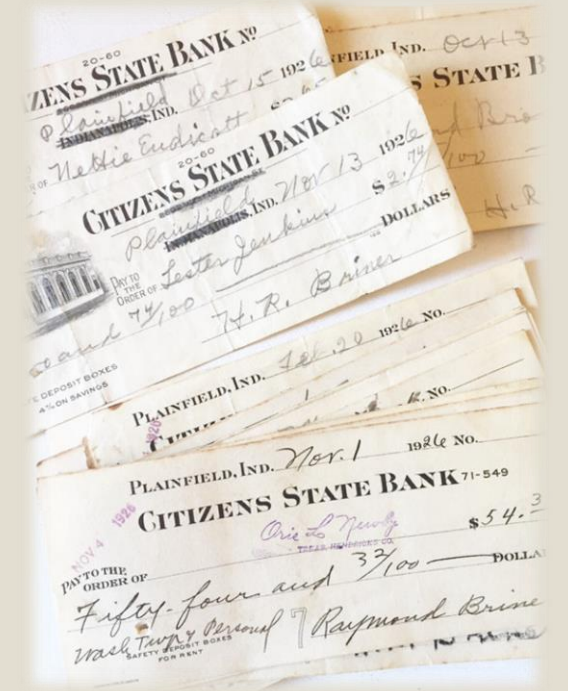 20-60
ZENS STATE BANK No
Plainfield
INDIANAPOLIS, IND. Oct 15 1926
OF Nettie Endicott
NFIELD IND. Oct 13
S STATE B
nd Bro
/100
H.R
20-60
CITIZENS STATE BANK No
Plainfield
INDIANAPOLIS, IND. Nov 13 1926
PAY TO THE ORDER OF Lester Jenkins $2.74/100
o and 74/100 DOLLARS
H. R. Briner
E DEPOSIT BOXES
4% ON SAVINGS
PLAINFIELD, IND. Feb. 20 1926 No.
No.
PLAINFIELD, IND. Nov. 1 1926 No.
CITIZENS STATE BANK 71-549
NOV 4 1926
Orie L Newby
TREAS. HENDRICKS CO.
$54.3
PAY TO THE
ORDER OF
Fifty-four and 32/100 DOLLA
Wash Twp & Personal Raymond Brine
SAFETY DEPOSIT BOXES
FOR RENT